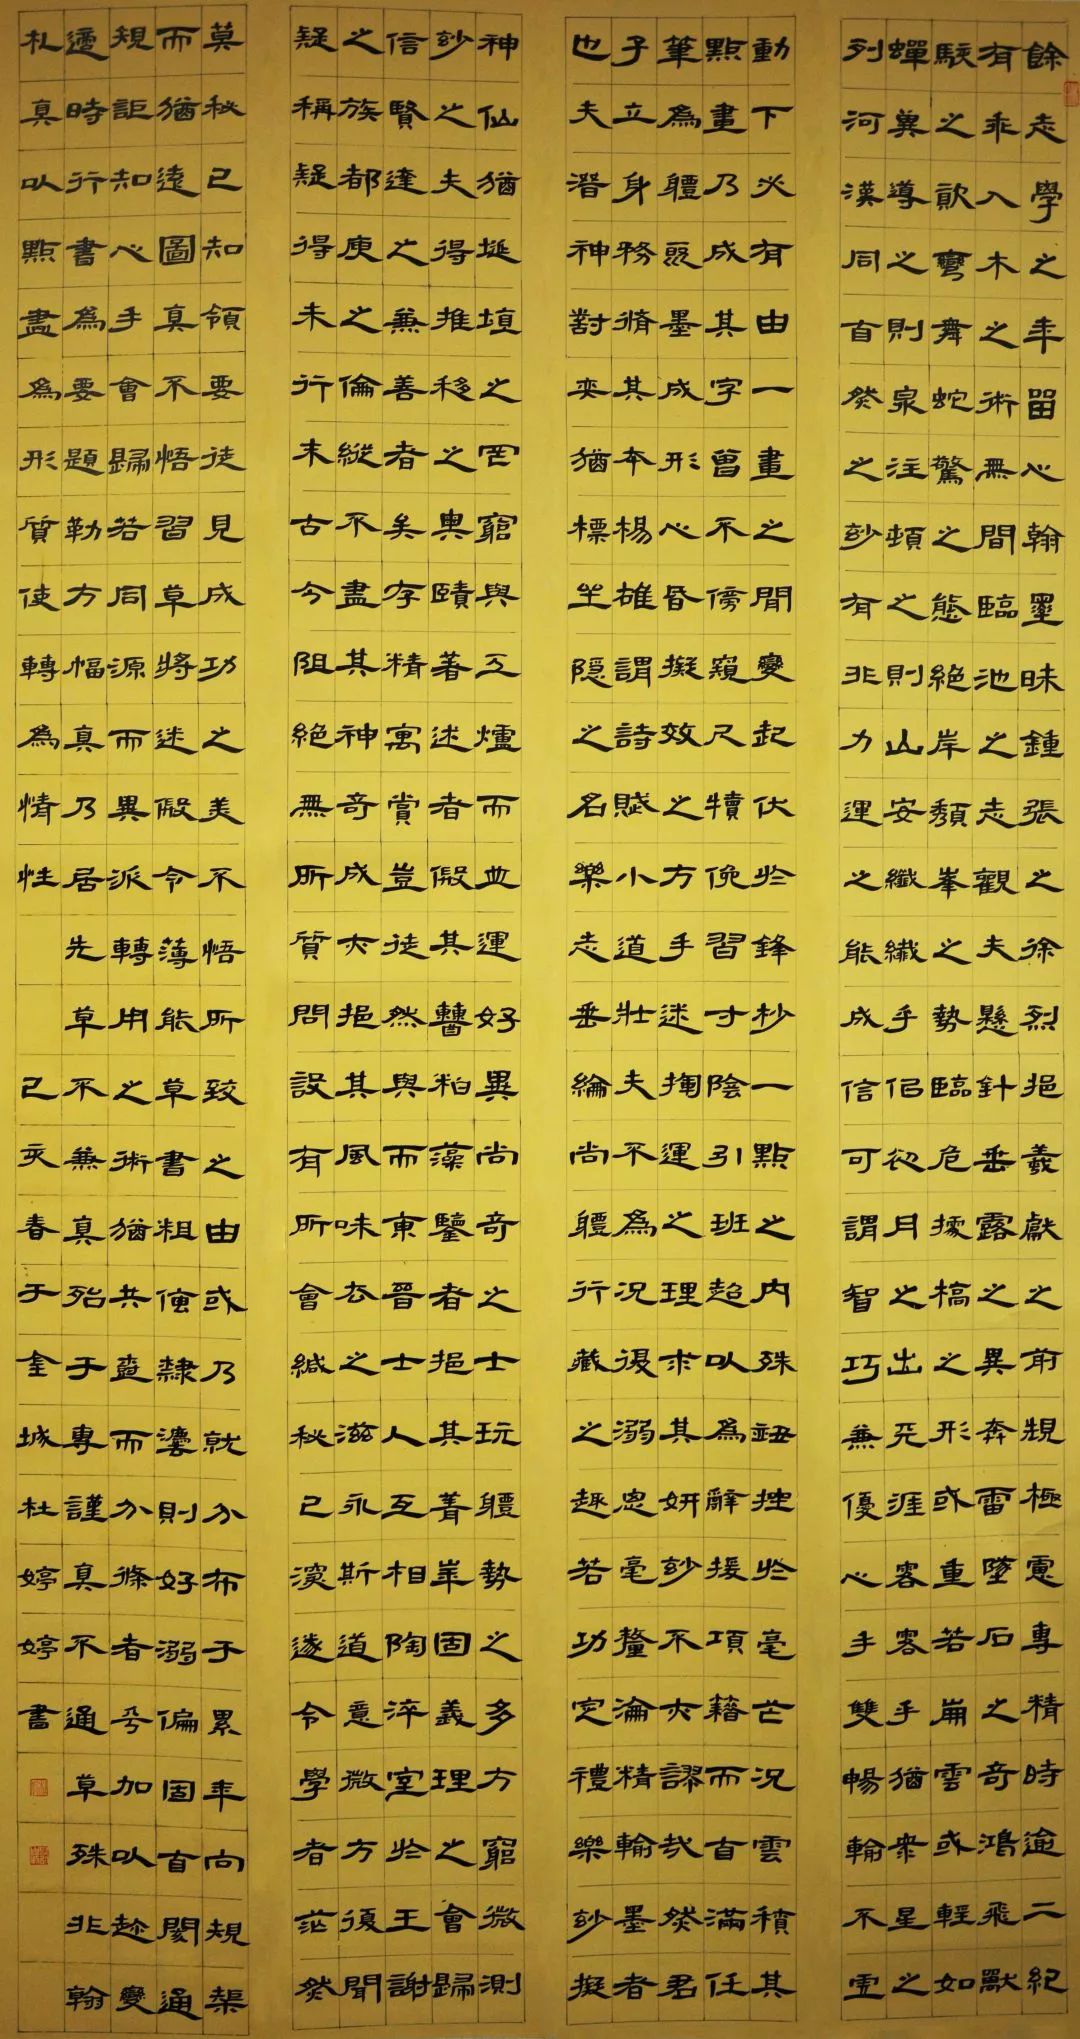 餘志學之年留心翰墨味鍾張之徐烈挹羲獻之前規極慮專精時逾二紀
有乖入木之術無間臨池之志觀夫懸針垂露之異奔雷墜石之奇鴻飛獸
駭之歆鸞舞蛇驚之態絕岸頹峯之勢臨危據槁之形或重若崩雲或輕如
蟬翼導之則泉注頓之則山安纖纖乎侣初月之出天涯客客乎猶衆星之
列河漢同自然之妙有非力運之能成信可謂智巧兼優心手雙暢翰不虛
動下必有由一畫之間變起伏於鋒杪一點之內殊衄挫於毫芒況雲積其
點畫乃成其字曾不傍窺尺牘俛習寸陰引班超以為辭援項藉而自滿任
筆為體既墨成形心昏擬效之方手迷揮運之理求其妍妙不亦謬哉然君
子立身務脩其本楊雄謂詩賦小道壯夫不為況復溺思毫釐淪精翰墨者
也夫潛神對奕猶標坐隱之名樂志垂綸尚體行藏之趣若功定禮樂妙擬
神仙猶埏埴之罔窮與工爐而並運好異尚奇之士玩體勢之多方窮微測
妙之夫得推移之奧賾著述者假其糟粕藻鑒者挹其菁華固義理之會歸
信賢達之兼善者矣存精寓賞豈徒然與而東晉士人互相陶淬室於王謝
之族都庾之倫縱不盡其神奇咸亦挹其風味去之滋永斯道意微方復聞
疑稱疑得未行末古今阻絕無所質問設有所會緘秘已深遂令學者茫然
莫秘已知領要徒見成功之美不悟所致之由或乃就分布于累年向規榘
而猶遠圖真不悟習草將迷假令薄能草書粗傳隸法則好溺偏固自閡通
規詎知心手會歸若同源而異派轉用之術猶共樹而分條者乎加以趍變
適時行書為要題勒方幅真乃居先草不兼真殆于專謹真不通草殊非翰
札真以點畫為形質使轉為情性 己亥春于金城杜婷婷書